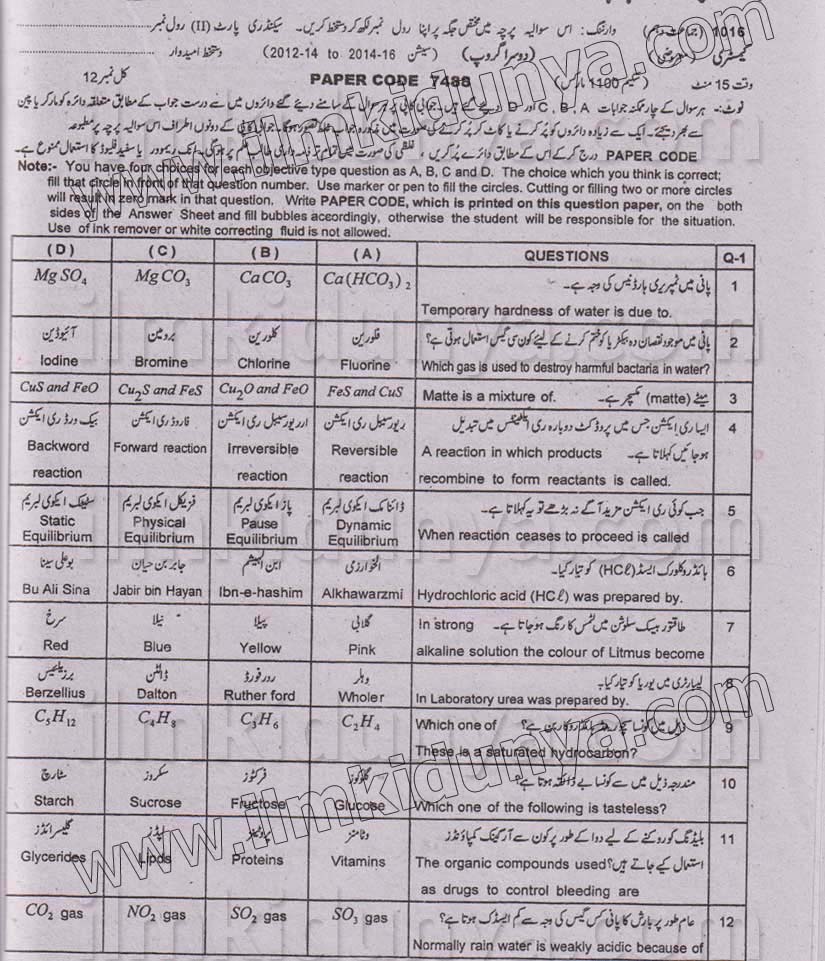 1016 (جماعت دہم) وارننگ : اس سوالیہ پرچہ میں مختص جگہ پر اپنا رول نمبر لکھ کر دستخط کریں۔ سیکنڈری پارٹ (II) رول نمبر
کیمسٹری (معروضی) (دوسرا گروپ) (سیشن 2012-14 to 2014-16) دستخط امیدوار
وقت 15 منٹ (سکیم 1100 مارکس) PAPER CODE 7488 کل نمبر 12
نوٹ:- ہر سوال کے چار ممکنہ جوابات A ، B ، C اور D دیئے گئے ہیں۔ جوابی کاپی پر ہر سوال کے سامنے دیئے گئے دائروں میں سے درست جواب کے مطابق متعلقہ دائرہ کو مارکر یا پین
سے بھر دیجئے۔ ایک سے زیادہ دائروں کو پُر کرنے یا کاٹ کر پُر کرنے کی صورت میں مذکورہ جواب غلط تصور ہوگا۔ جوابی کاپی کے دونوں اطراف اس سوالیہ پرچہ پر مطبوعہ
PAPER CODE درج کر کے اس کے مطابق دائرے پُر کریں ، غلطی کی صورت میں تمام تر ذمہ داری طالب علم پر ہوگی۔ انک ریموور یا سفید فلیوڈ کا استعمال ممنوع ہے۔
Note:- You have four choices for each objective type question as A, B, C and D. The choice which you think is correct;
fill that circle in front of that question number. Use marker or pen to fill the circles. Cutting or filling two or more circles
will result in zero mark in that question. Write PAPER CODE, which is printed on this question paper, on the both
sides of the Answer Sheet and fill bubbles accordingly, otherwise the student will be responsible for the situation.
Use of ink remover or white correcting fluid is not allowed.
( D ) ( C ) ( B ) ( A ) QUESTIONS Q-1
MgSO₄ MgCO₃ CaCO₃ Ca(HCO₃)₂ پانی میں ٹمپریری ہارڈنیس کی وجہ ہے۔ 1
Temporary hardness of water is due to.
آئیوڈین برومین کلورین فلورین پانی میں موجود نقصان دہ بیکٹریا کو ختم کرنے کے لیئے کون سی گیس استعمال ہوتی ہے؟ 2
Iodine Bromine Chlorine Fluorine Which gas is used to destroy harmful bactaria in water?
CuS and FeO Cu₂S and FeS Cu₂O and FeO FeS and CuS Matte is a mixture of. میٹے (matte) مکسچر ہے۔ 3
بیک ورڈ ری ایکشن فارورڈ ری ایکشن ارریورسیبل ری ایکشن ریورسیبل ری ایکشن ایسا ری ایکشن جس میں پروڈکٹ دوبارہ ری ایکٹنٹس میں تبدیل 4
Backword Forward reaction Irreversible Reversible ہو جائیں کہلاتا ہے۔ A reaction in which products
reaction reaction reaction recombine to form reactants is called.
سٹیٹک ایکوی لبریم فزیکل ایکوی لبریم پاز ایکوی لبریم ڈائنامک ایکوی لبریم جب کوئی ری ایکشن مزید آگے نہ بڑھے تو یہ کہلاتا ہے۔ 5
Static Physical Pause Dynamic
Equilibrium Equilibrium Equilibrium Equilibrium When reaction ceases to proceed is called
بوعلی سینا جابر بن حیان ابن الہیشم الخوارزمی ہائڈروکلورک ایسڈ (HCℓ) کو تیار کیا۔ 6
Bu Ali Sina Jabir bin Hayan Ibn-e-hashim Alkhawarzmi Hydrochloric acid (HCℓ) was prepared by.
سرخ نیلا پیلا گلابی In strong طاقتور بیسک سلوشن میں لٹمس کا رنگ ہو جاتا ہے۔ 7
Red Blue Yellow Pink alkaline solution the colour of Litmus become
برزیلیئس ڈالٹن رودرفورڈ وہلر لیبارٹری میں یوریا کو تیار کیا۔ 8
Berzellius Dalton Ruther ford Wholer In Laboratory urea was prepared by.
C₅H₁₂ C₄H₈ C₃H₆ C₂H₄ Which one of ذیل میں کونسا سیچوریٹڈ ہائڈروکاربن ہے؟ 9
These is a saturated hydrocarbon?
سٹارچ سکروز فرکٹوز گلوکوز مندرجہ ذیل میں سے کونسا بے ذائقہ ہوتا ہے؟ 10
Starch Sucrose Fructose Glucose Which one of the following is tasteless?
گلیسرائڈز لپڈز پروٹینز وٹامنز بلیڈنگ کو روکنے کے لیے دوا کے طور پر کون سے آرگینک کمپاؤنڈز 11
Glycerides Lipds Proteins Vitamins استعمال کیے جاتے ہیں؟ The organic compounds used
as drugs to control bleeding are
CO₂ gas NO₂ gas SO₂ gas SO₃ gas عام طور پر بارش کا پانی کس گیس کی وجہ سے کم ایسڈک ہوتا ہے؟ 12
Normally rain water is weakly acidic because of
www.ilmkidunya.com
www.ilmkidunya.com